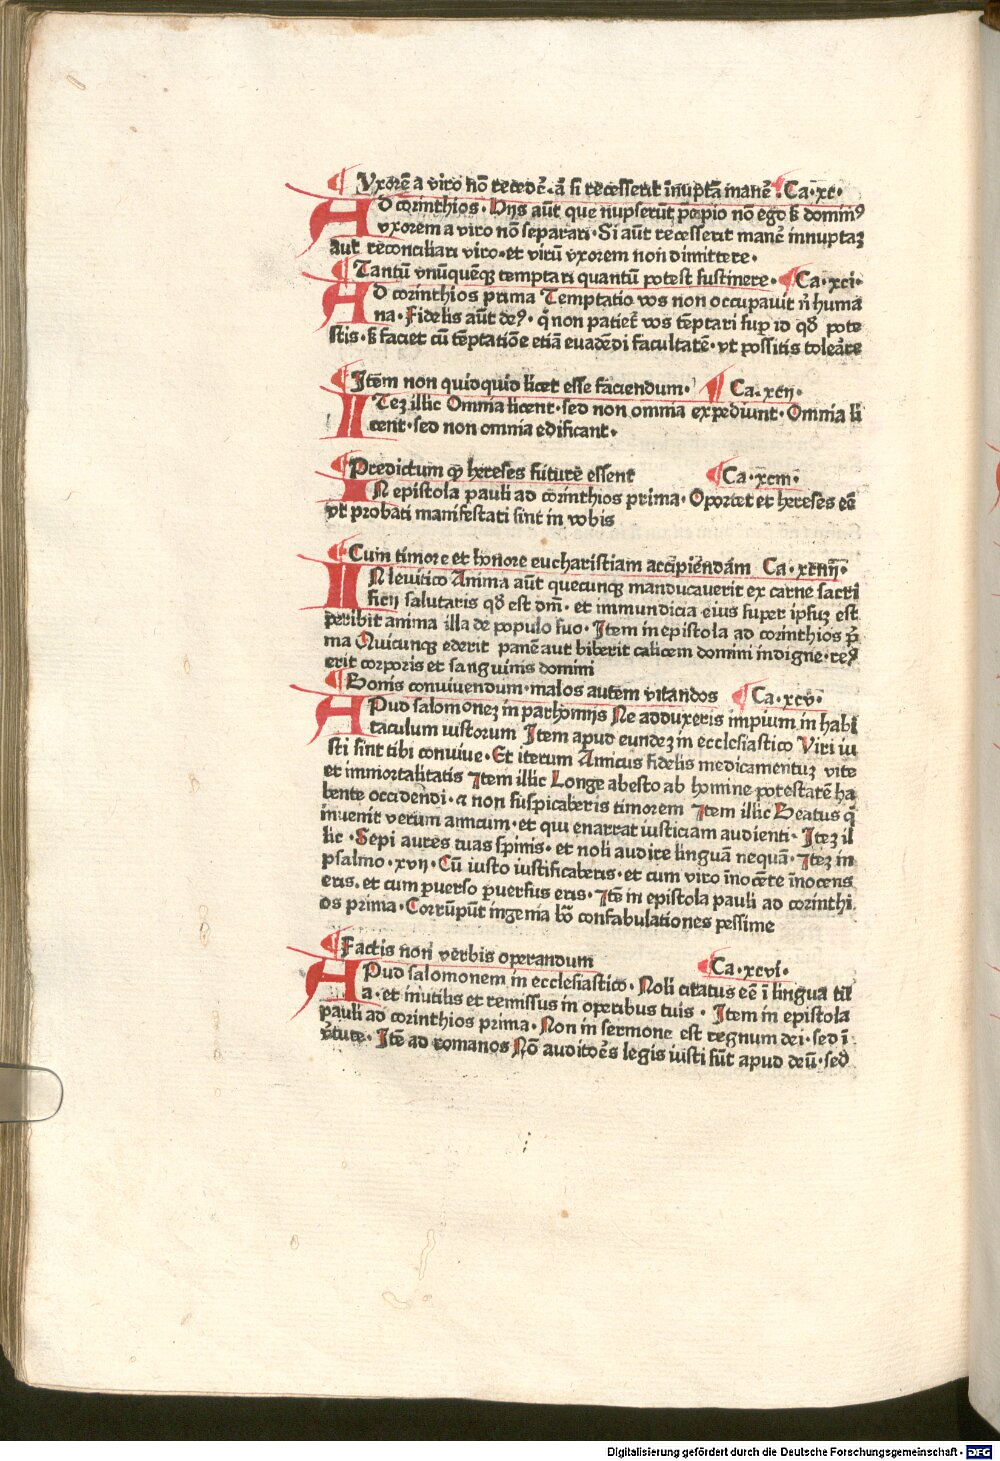 Uxorē a viro nō recedē̄· aut̄ si recesserit īnuptā manē̄· Ca·xc·
AD corinthios· Hijs aūt que nupserūt p̄cipio nō ego sꝫ dominꝰ
vxorem a viro nō separari· Si aūt recesserit manē̄ innuptaꝫ
aut reconciliari viro· et virū vxorem non dimittere·
Tantū vnūquēqꝫ temptari quantū potest sustinere· Ca·xci·
AD corinthios prima Temptatio vos non occupauit n̄ huma
na· Fidelis aūt deꝰ· q̄ non patiet̄ vos tēptari sup id qḋ pote
stis· sꝫ faciet cū tēptatiōe etiā euadēdi facultatē· vt possitis toleāre
Itēm non quidquid licet esse faciendum· Ca·xcij·
ITeꝫ illic Omnia licent· sed non omnia expediunt· Omnia li
cent· sed non omnia edificant·
Predictum ꝙ hereses future essent Ca·xciij·
IN epistola pauli ad corinthios prima· Oportet et hereses eē
vt probati manifestati sint in vobis
Cum timore et honore eucharistiam accipiendam Ca·xciiij·
IN leuitico Anima aūt quecunqꝫ manducauerit ex carne sacri
ficij salutaris qḋ est dm̄· et immundicia eius super ipsuꝫ est
peribit anima illa de populo suo· Item in epistola ad corinthios p̄
ma Quicunqꝫ ederit panē aut biberit calicem domini indigne· reꝰ
erit corporis et sanguinis domini
Bonis conviuendum· malos autem vitandos Ca·xcv·
APud salomoneꝫ in parhomijs Ne adduxeris impium in habi
taculum iustorum Item apud eundeꝫ in ecclesiastico Viri iu
sti sint tibi conviue· Et iterum Amicus fidelis medicamentuꝫ vite
et immortalitatis Item illic Longe abesto ab homine potestatē ha
bente occidendi· ⁊ non suspicaberis timorem Item illic Beatus q̄
inuenit verum amicum· et qui enarrat iusticiam audienti· Iteꝫ il
lic· Sepi aures tuas spinis· et noli audire linguā nequā· Iteꝫ in
psalmo· xvij· Cū iusto iustificaberis· et cum viro īnocēte īnocens
eris· et cum ꝑuerso ꝑuersus eris· Itē in epistola pauli ad corinthi
os prima· Corrūpūt ingenia bōā confabulationes pessime
Factis non verbis operandum Ca·xcvi·
APud salomonem in ecclesiastico· Noli citatus eē ī lingua tu
a· et inutilis et remissus in operibus tuis· Item in epistola
pauli ad corinthios prima· Non in sermone est regnum dei· sed ī
v̄tute· Itē ad romanos Nō auditoēs legis iusti sūt apud deū· sed
Digitalisierung gefördert durch die Deutsche Forschungsgemeinschaft - DFG